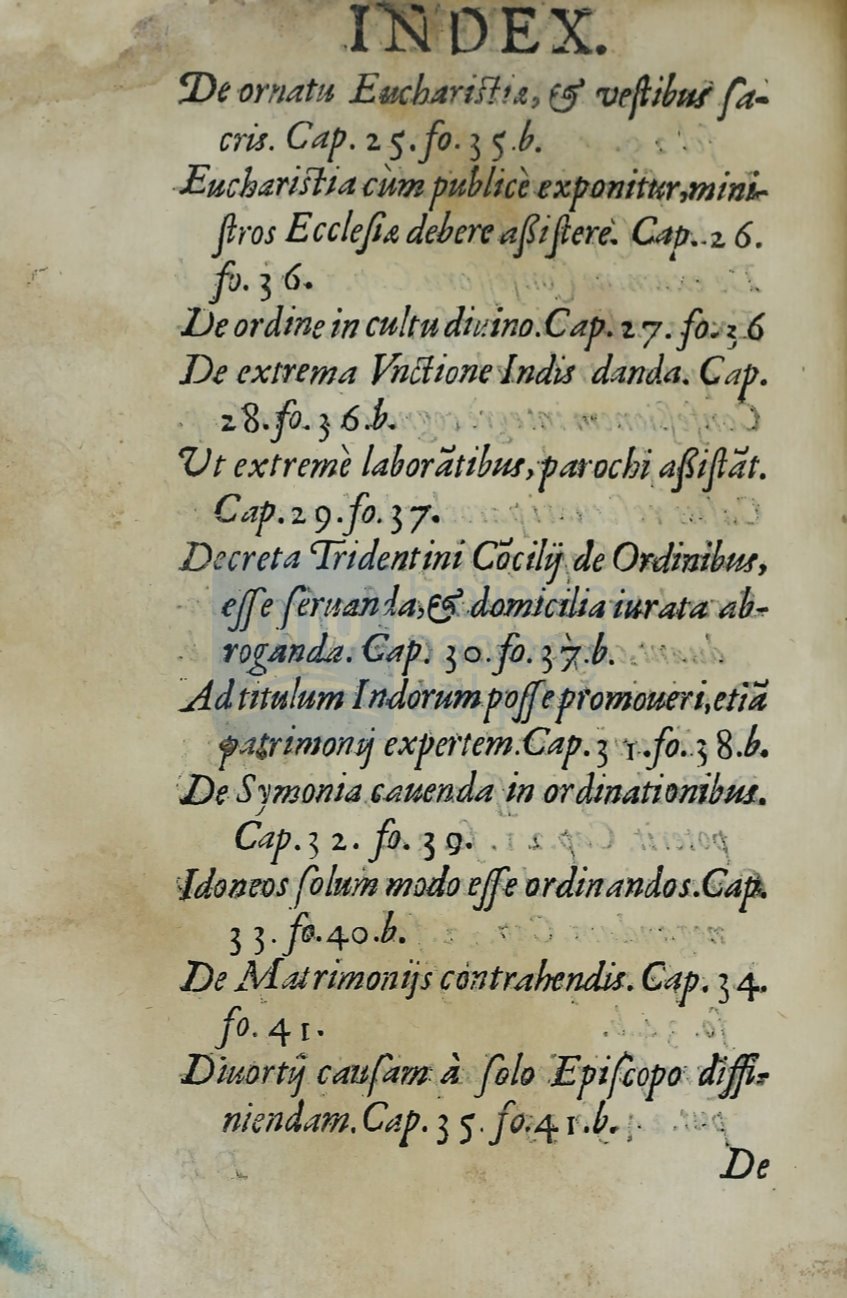 INDEX.
De ornatu Euchariſtiæ, & veſtibus ſa-
cris. Cap. 25. fo. 35.b.
Euchariſtia cùm publicè exponitur, mini-
ſtros Eccleſiæ debere aßiſtere. Cap. 26.
fo. 36.
De ordine in cultu diuino. Cap. 27. fo. 36
De extrema Vnctione Indis danda. Cap.
28. fo. 36.b.
Vt extremè laborãtibus, parochi aßiſtãt.
Cap. 29. fo. 37.
Decreta Tridentini Cõcilij de Ordinibus,
eſſe ſeruanda, & domicilia iurata ab-
roganda. Cap. 30. fo. 37.b.
Ad titulum Indorum poſſe promoueri, etiã
patrimonij expertem. Cap. 31. fo. 38.b.
De Symonia cauenda in ordinationibus.
Cap. 32. fo. 39.
Idoneos ſolum modo eſſe ordinandos. Cap.
33. fo. 40.b.
De Matrimonijs contrahendis. Cap. 34.
fo. 41.
Diuortij cauſam à ſolo Epiſcopo diffi-
niendam. Cap. 35. fo. 41.b.
De